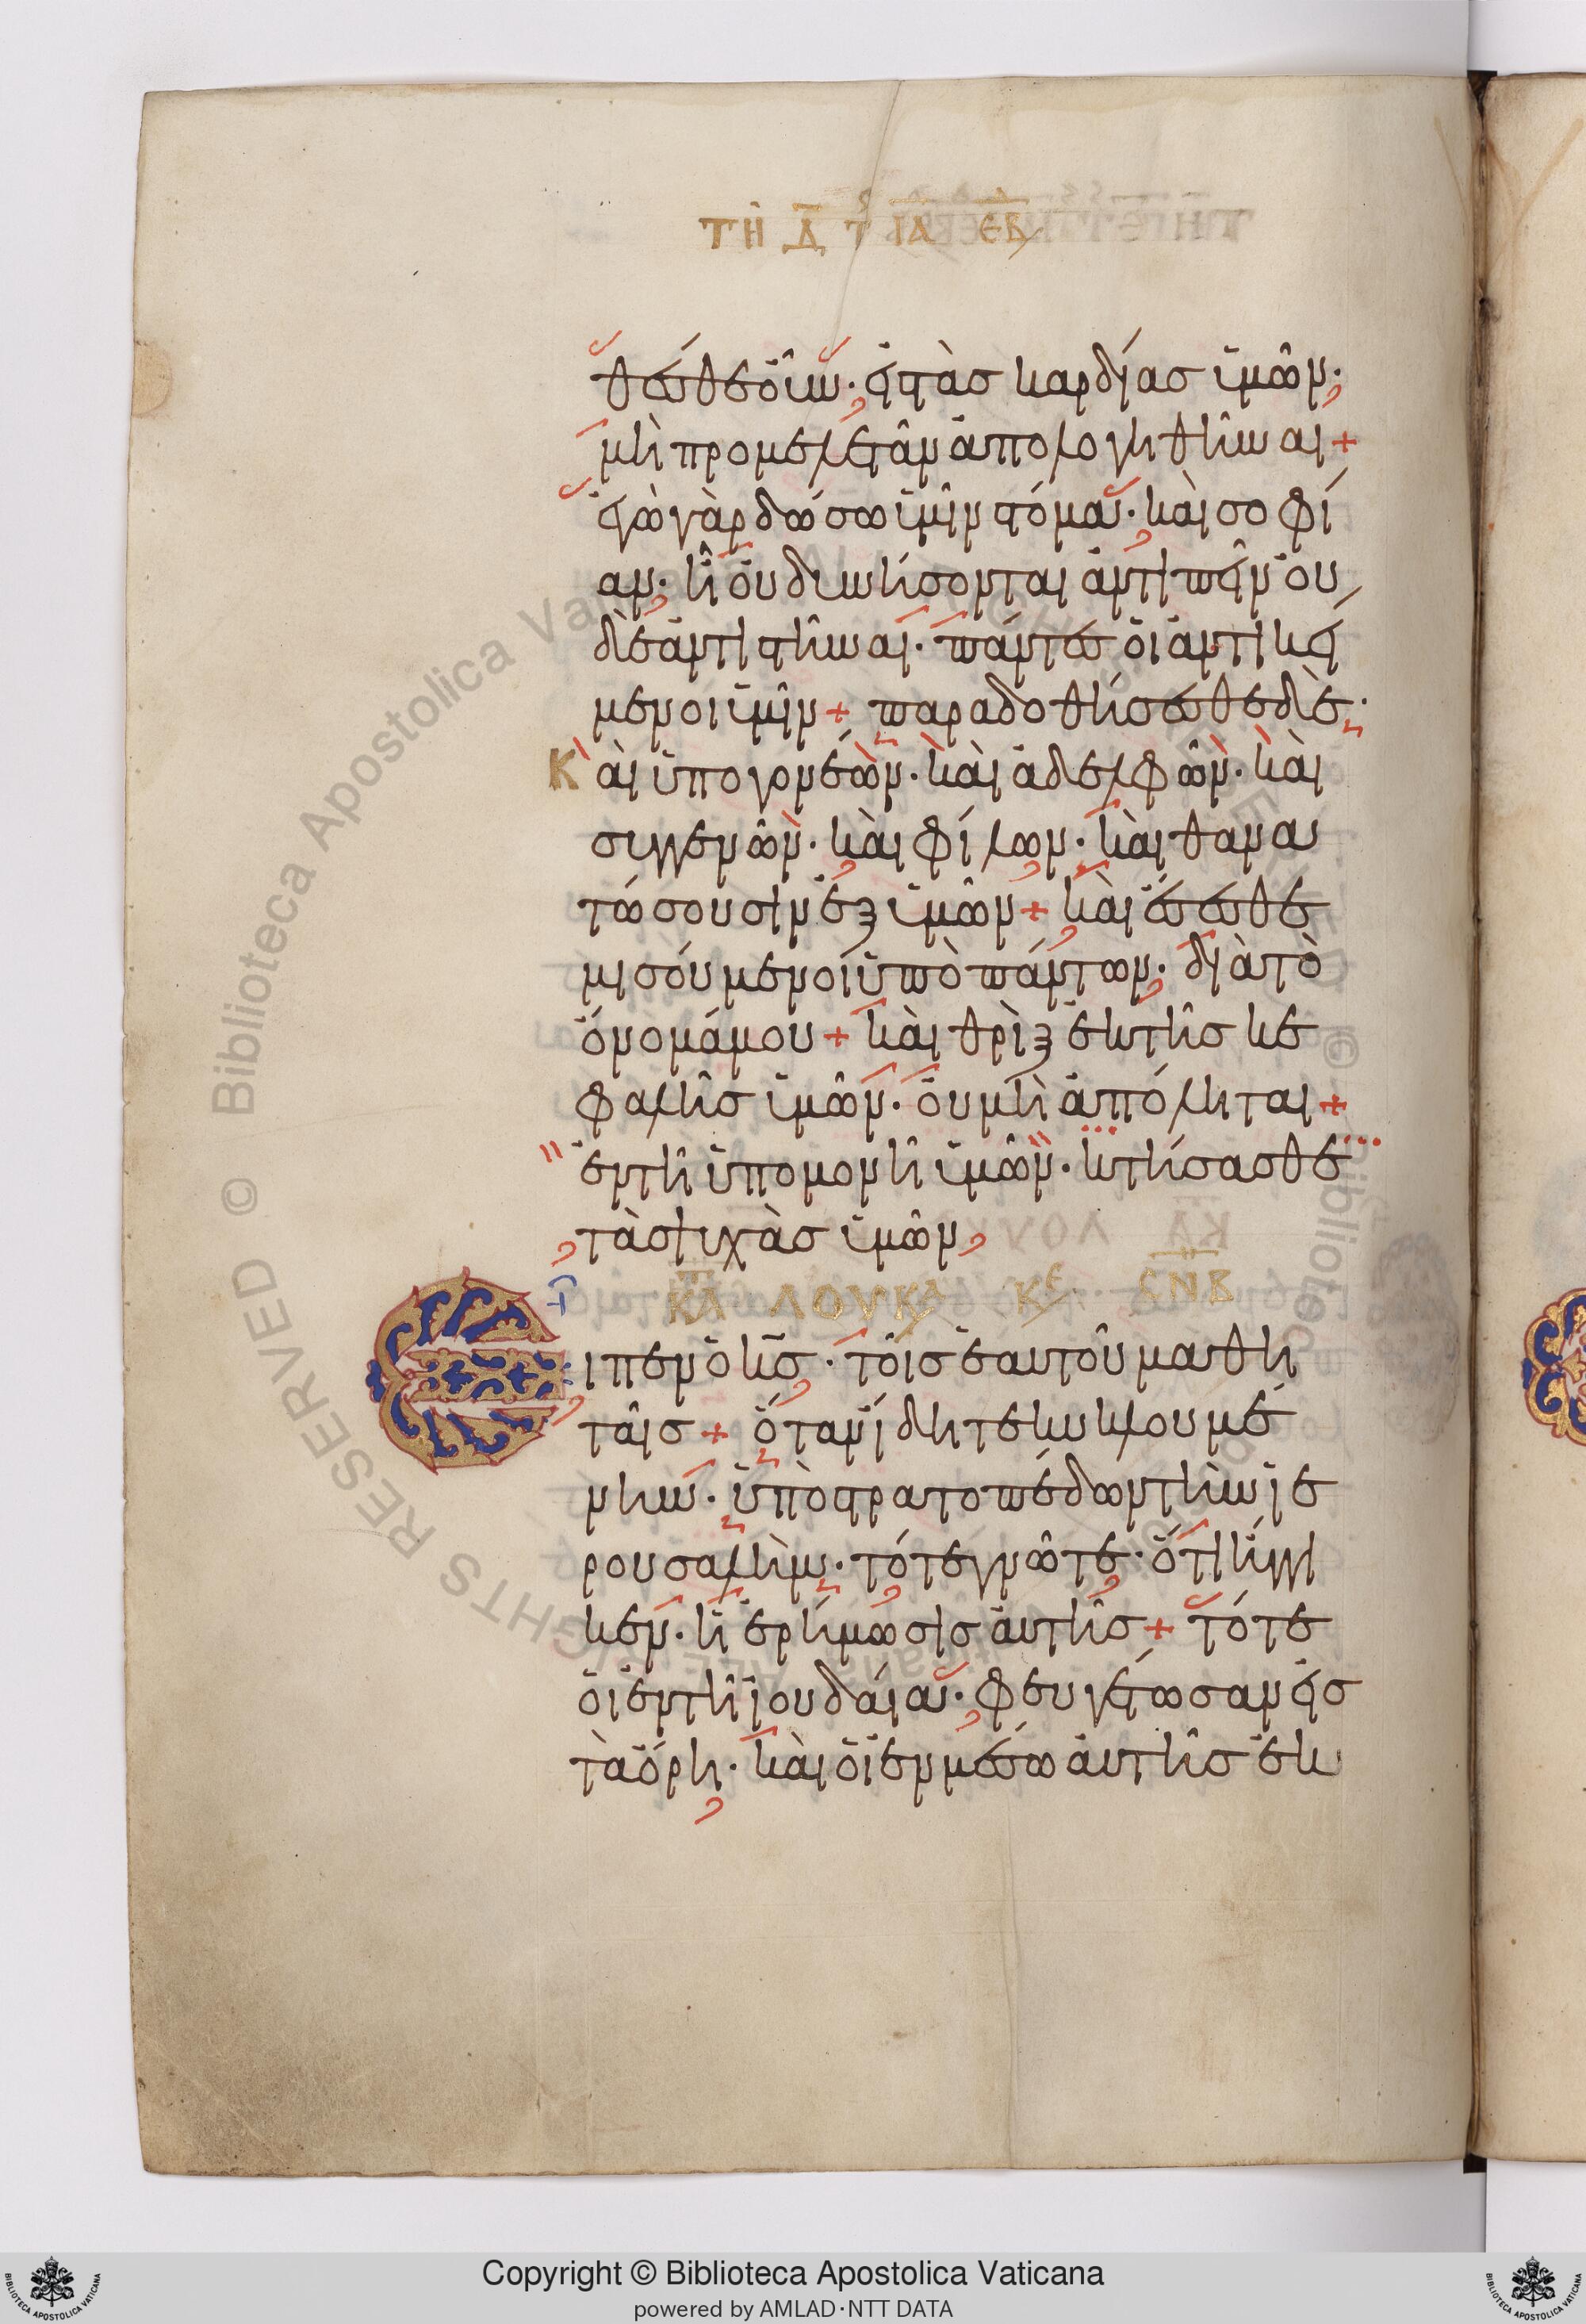 ΤΗ Δ Τ ΙΑ ΕΒ
θέσθε οὖν· εἰς τὰσ καρδίασ ὑμῶν·
μὴ προμελετᾶν ἀπολογηθῆναι +
ἐγὼ γὰρ δώσω ὑμῖν στόμα· καὶ σοφί
αν· ᾗ οὐ δυνήσονται ἀντιπεῖν οὐ
δὲ ἀντιστῆναι· πάντεσ οἱ ἀντικεί
μενοι ὑμῖν + παραδοθήσεσθε δὲ·
Καὶ ὑπὸ γονέων· καὶ ἀδελφῶν· καὶ
συγγενῶν· καὶ φίλων· καὶ θανα
τώσουσιν ἐξ ὑμῶν + καὶ ἔσεσθε
μισούμενοι ὑπὸ πάντων· διὰ τὸ
ὄνομά μου + καὶ θρὶξ ἐκ τῆσ κε
φαλῆσ ὑμῶν· οὐ μὴ ἀπόληται +
ἐν τῇ ὑπομονῇ ὑμῶν· κτήσασθε
τὰσ ψυχὰσ ὑμῶν
ΚΑ ΛΟΥΚΑ ΚΕ ϹΝΒ
Εἶπεν ὁ κσ· τοῖσ ἑαυτοῦ μαθη
ταῖσ + ὅταν ἴδητε κυκλουμέ
νην· ὑπὸ στρατοπέδων τὴν ἱε
ρουσαλήμ· τότε γνῶτε· ὅτι ἤγγι
κεν· ἡ ἐρήμωσισ αὐτῆσ + τότε
οἱ ἐν τῇ ἰουδαίᾳ· φευγέτωσαν εἰσ
τὰ ὄρη· καὶ οἱ ἐν μέσῳ αὐτῆσ ἐκ
© Biblioteca Apostolica Vaticana ALL RIGHTS RESERVED
Copyright © Biblioteca Apostolica Vaticana
powered by AMLAD·NTT DATA